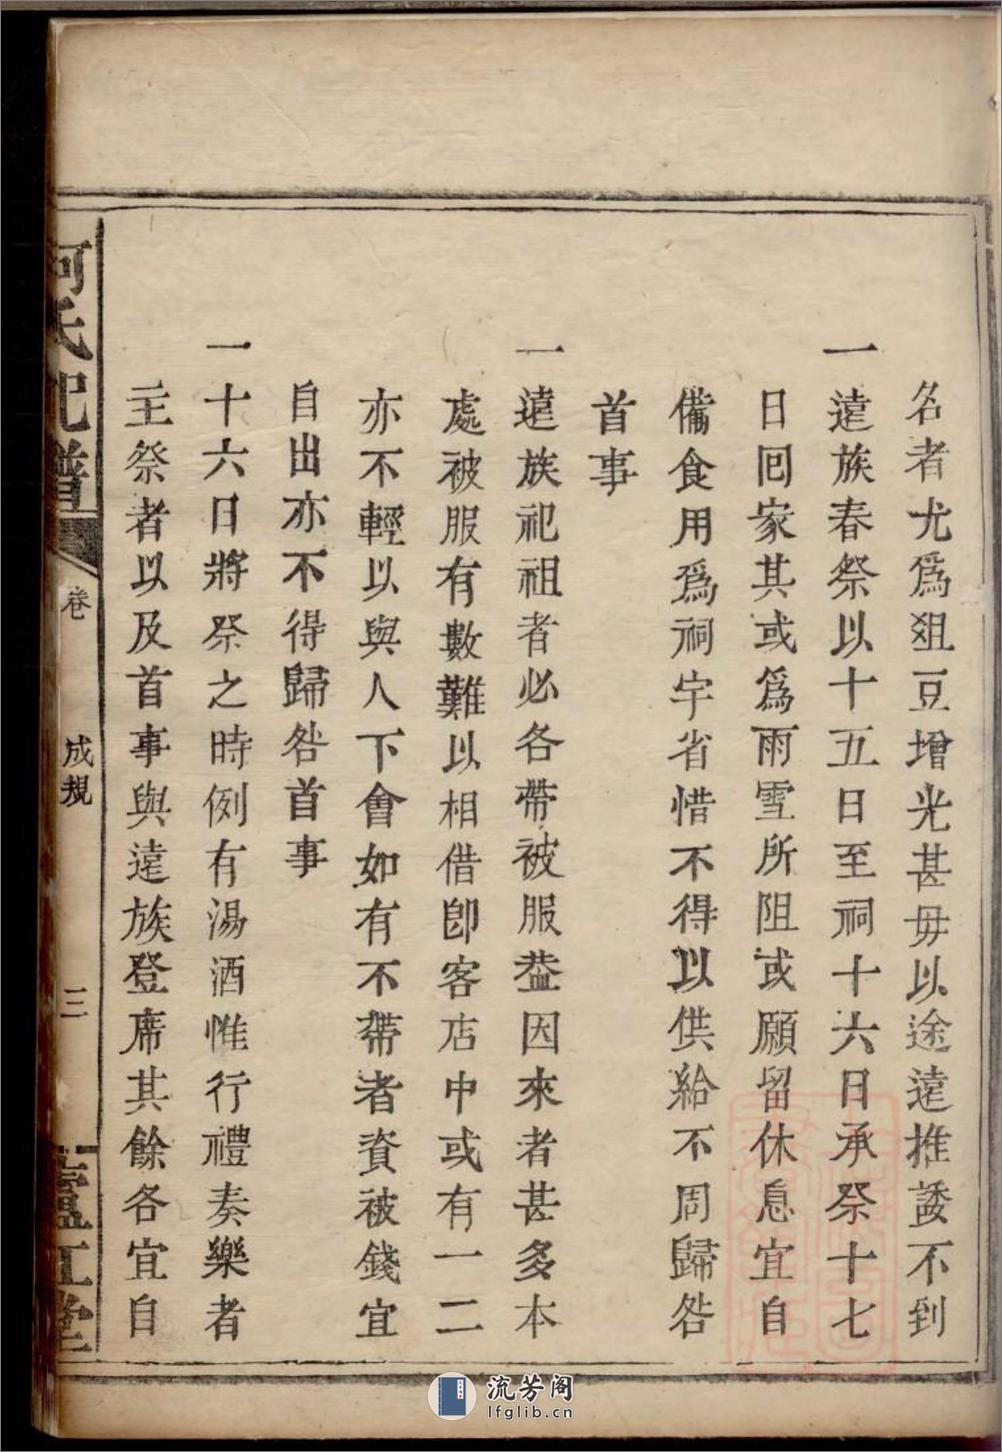 名者尤爲俎豆增光甚毋以途遠推諉不到
一遠族春祭以十五日至祠十六日承祭十七
日囘家其或爲雨雪所阻或願留休息宜自
備食用爲祠宇省惜不得以供給不周歸咎
首事
一遠族祀祖者必各帶被服葢因來者甚多本
處被服有數難以相借卽客店中或有一二
亦不輕以與人下會如有不帶者資被錢宜
自出亦不得歸咎首事
一十六日將祭之時例有湯酒惟行禮奏樂者
主祭者以及首事與遠族登席其餘各宜自
何氏祀譜
卷
成規
三
廬江堂
流芳阁
lfglib.cn